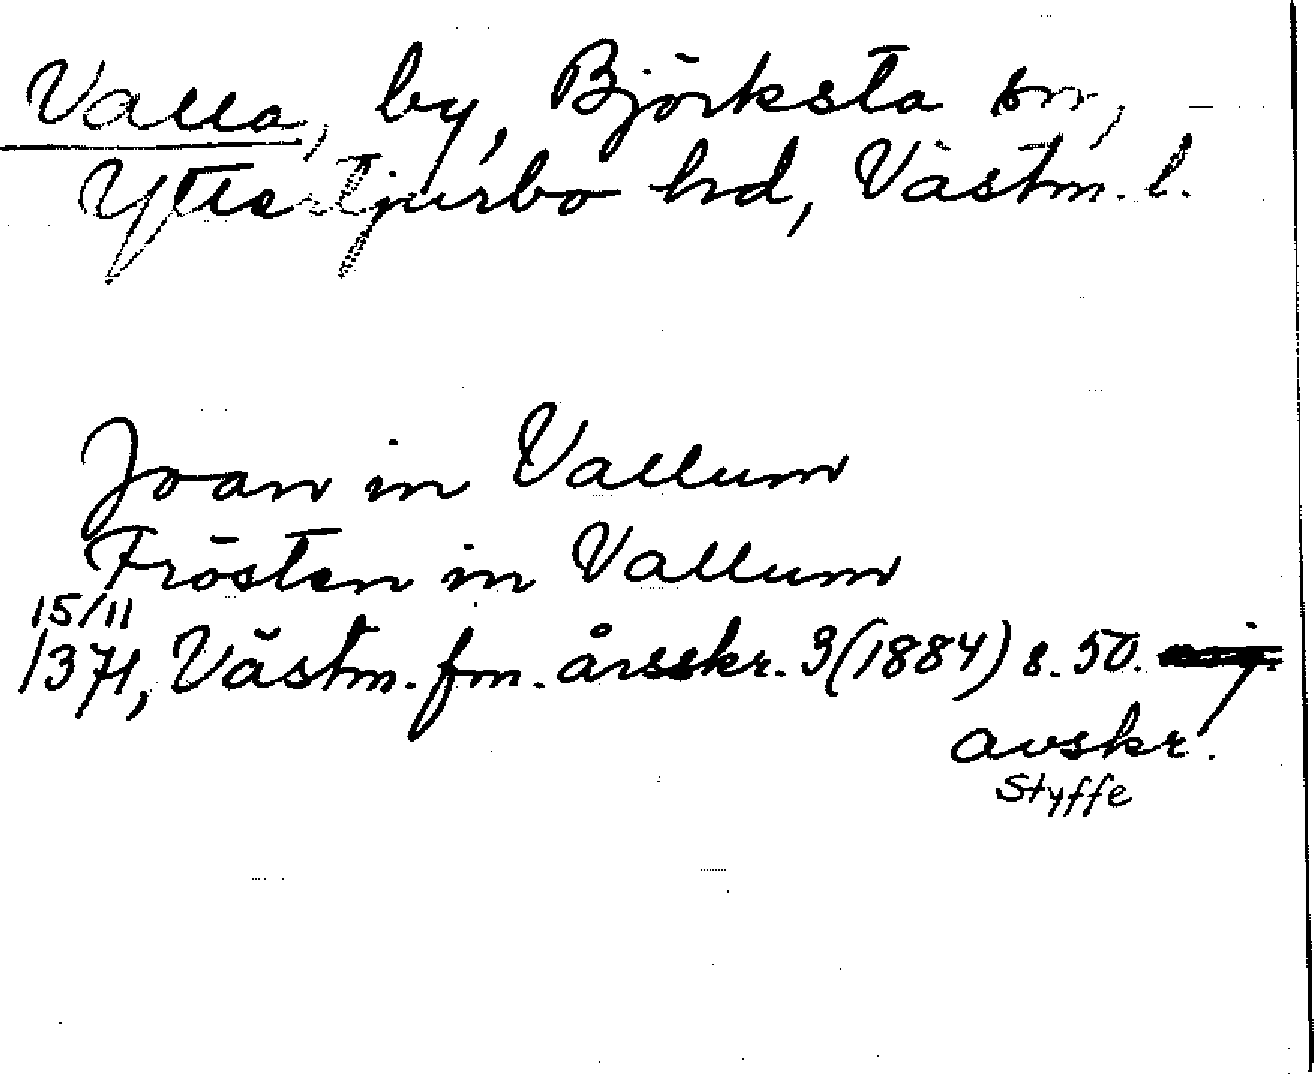 Valla, by, Björksta sn,
Yttertjurbo hd, Västm. l.
Joan in Vallum
Frösten in Vallum
15/11
1371, Västm. fm. årsskr. 3 (1884) s. 50.
avskr.
Styffe